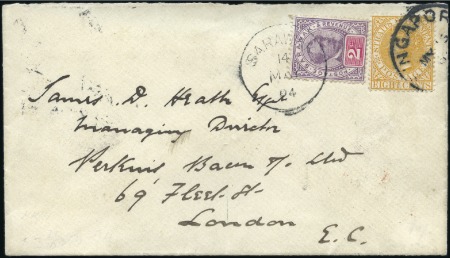 SARAWAK
14
MAY
94
2c
EIGHT CENTS
James D. Heath Esqre
Managing Director
Perkins Bacon & Co Ltd
69 Fleet St
London
E.C.